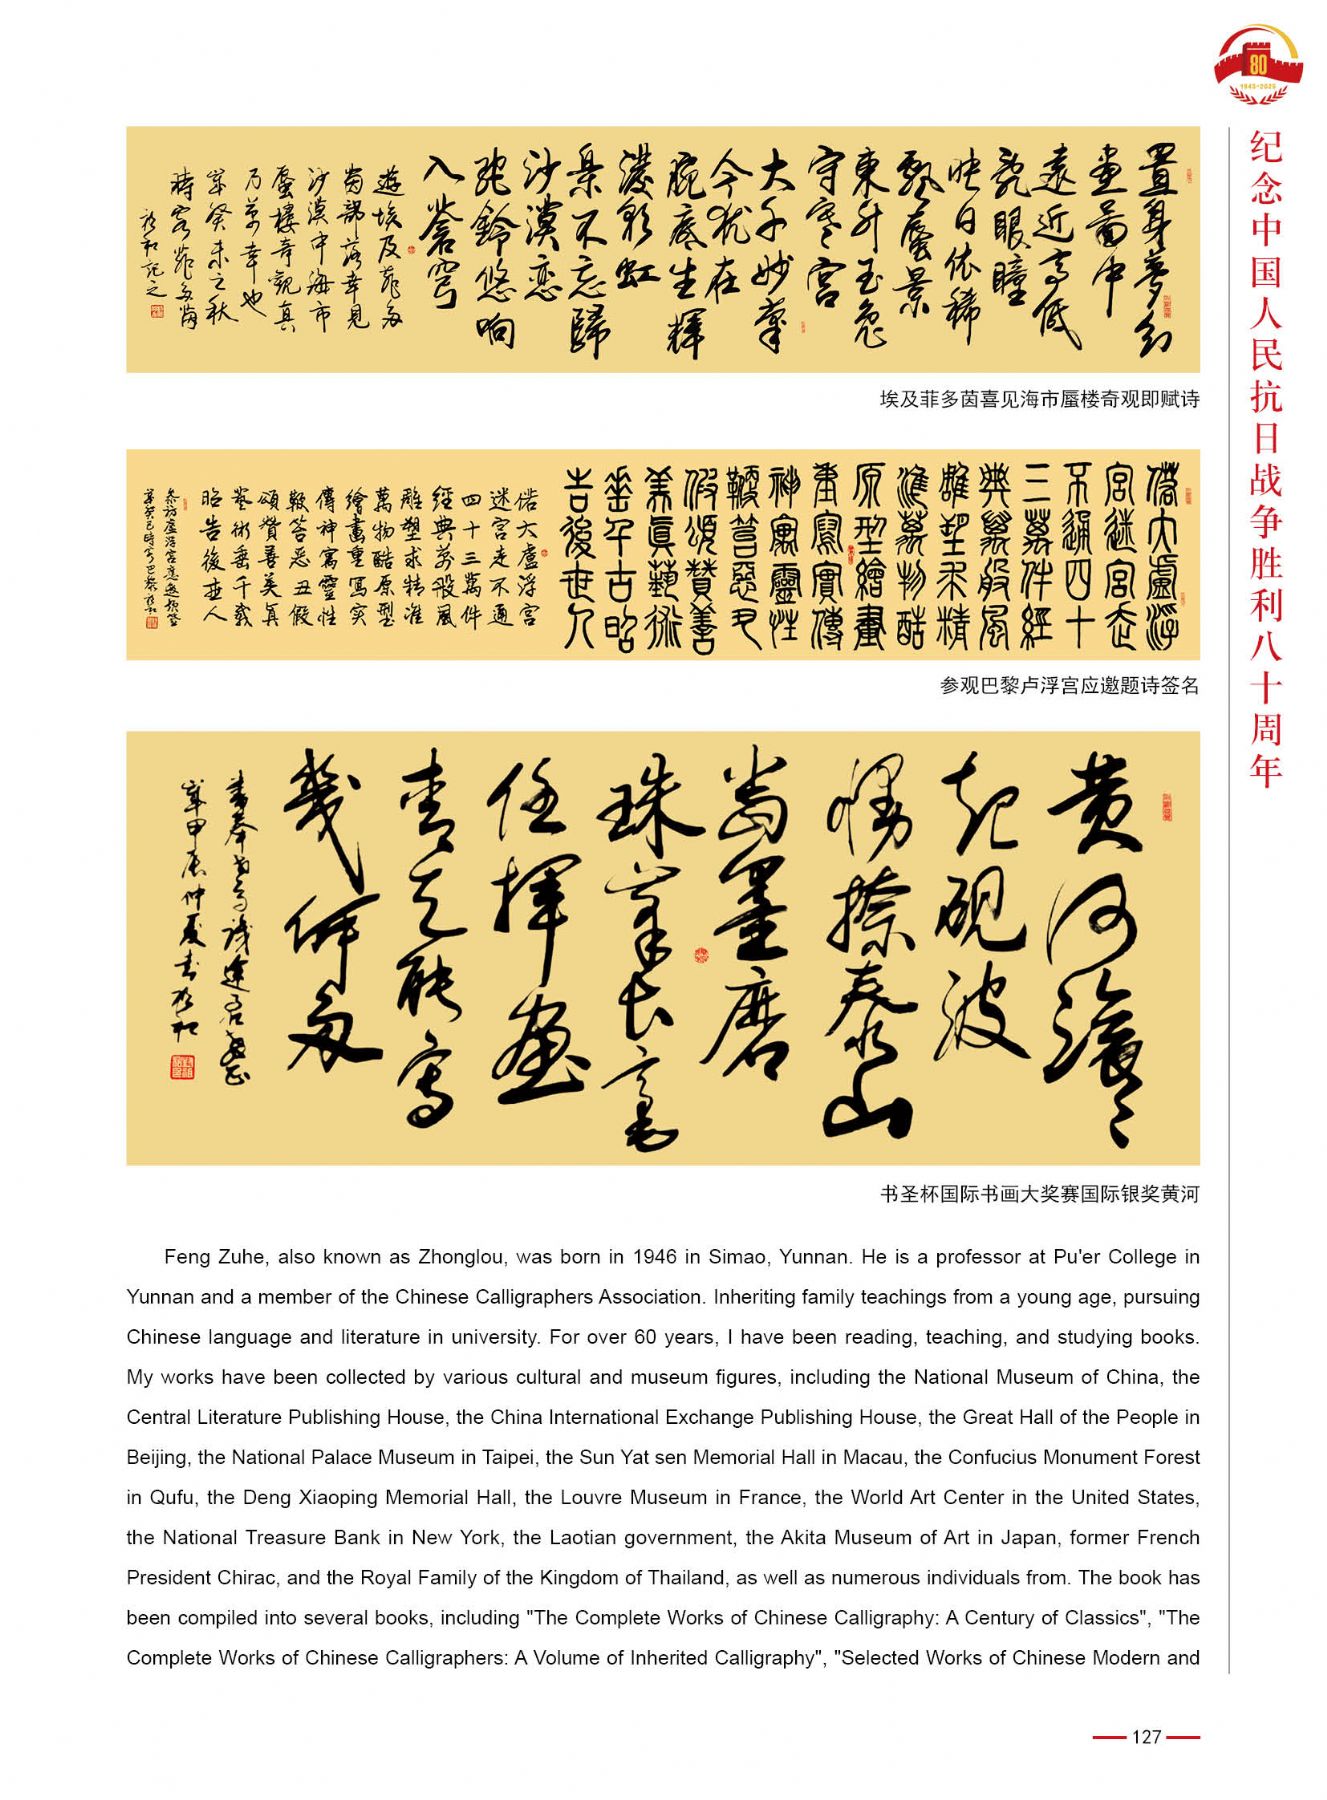 80
1945-2025
纪念中国人民抗日战争胜利八十周年
置身夢幻
畫圖中
遠近高低
亂眼瞳
映日依稀
飄蜃景
東升玉兔
守寒宮
大千妙筆
今犹在
腕底生輝
濃彩虹
最不忘歸
沙漠恋
駝鈴悠响
入蒼穹
遊埃及菲多
茵部落幸見
沙漠中海市
蜃樓奇觀真
乃萬幸也
歲癸未之秋
時客菲多茵
祖和記之
埃及菲多茵喜见海市蜃楼奇观即赋诗
偌大盧浮
宮迷宮走
不通四十
三萬件經
典萬般風
雕塑求精
準萬物酷
原型繪畫
重寫實傳
神寓靈性
鞭笞惡丑
假頌贊善
美真藝術
垂千古昭
告後世人
偌大盧浮宮
迷宮走不通
四十三萬件
經典萬般風
雕塑求精準
萬物酷原型
繪畫重寫实
傳神寓靈性
鞭笞恶丑假
頌贊善美真
藝術垂千載
昭告後世人
参观巴黎卢浮宫应邀题诗签名
黄河滚滚
起砚波
慣捺泰山
當墨磨
珠峯長毫
任揮畫
青天能寫
幾何多
歲甲辰仲夏
书圣杯国际书画大奖赛国际银奖黄河
Feng Zuhe, also known as Zhonglou, was born in 1946 in Simao, Yunnan. He is a professor at Pu'er College in
Yunnan and a member of the Chinese Calligraphers Association. Inheriting family teachings from a young age, pursuing
Chinese language and literature in university. For over 60 years, I have been reading, teaching, and studying books.
My works have been collected by various cultural and museum figures, including the National Museum of China, the
Central Literature Publishing House, the China International Exchange Publishing House, the Great Hall of the People in
Beijing, the National Palace Museum in Taipei, the Sun Yat sen Memorial Hall in Macau, the Confucius Monument Forest
in Qufu, the Deng Xiaoping Memorial Hall, the Louvre Museum in France, the World Art Center in the United States,
the National Treasure Bank in New York, the Laotian government, the Akita Museum of Art in Japan, former French
President Chirac, and the Royal Family of the Kingdom of Thailand, as well as numerous individuals from. The book has
been compiled into several books, including "The Complete Works of Chinese Calligraphy: A Century of Classics", "The
Complete Works of Chinese Calligraphers: A Volume of Inherited Calligraphy", "Selected Works of Chinese Modern and
127